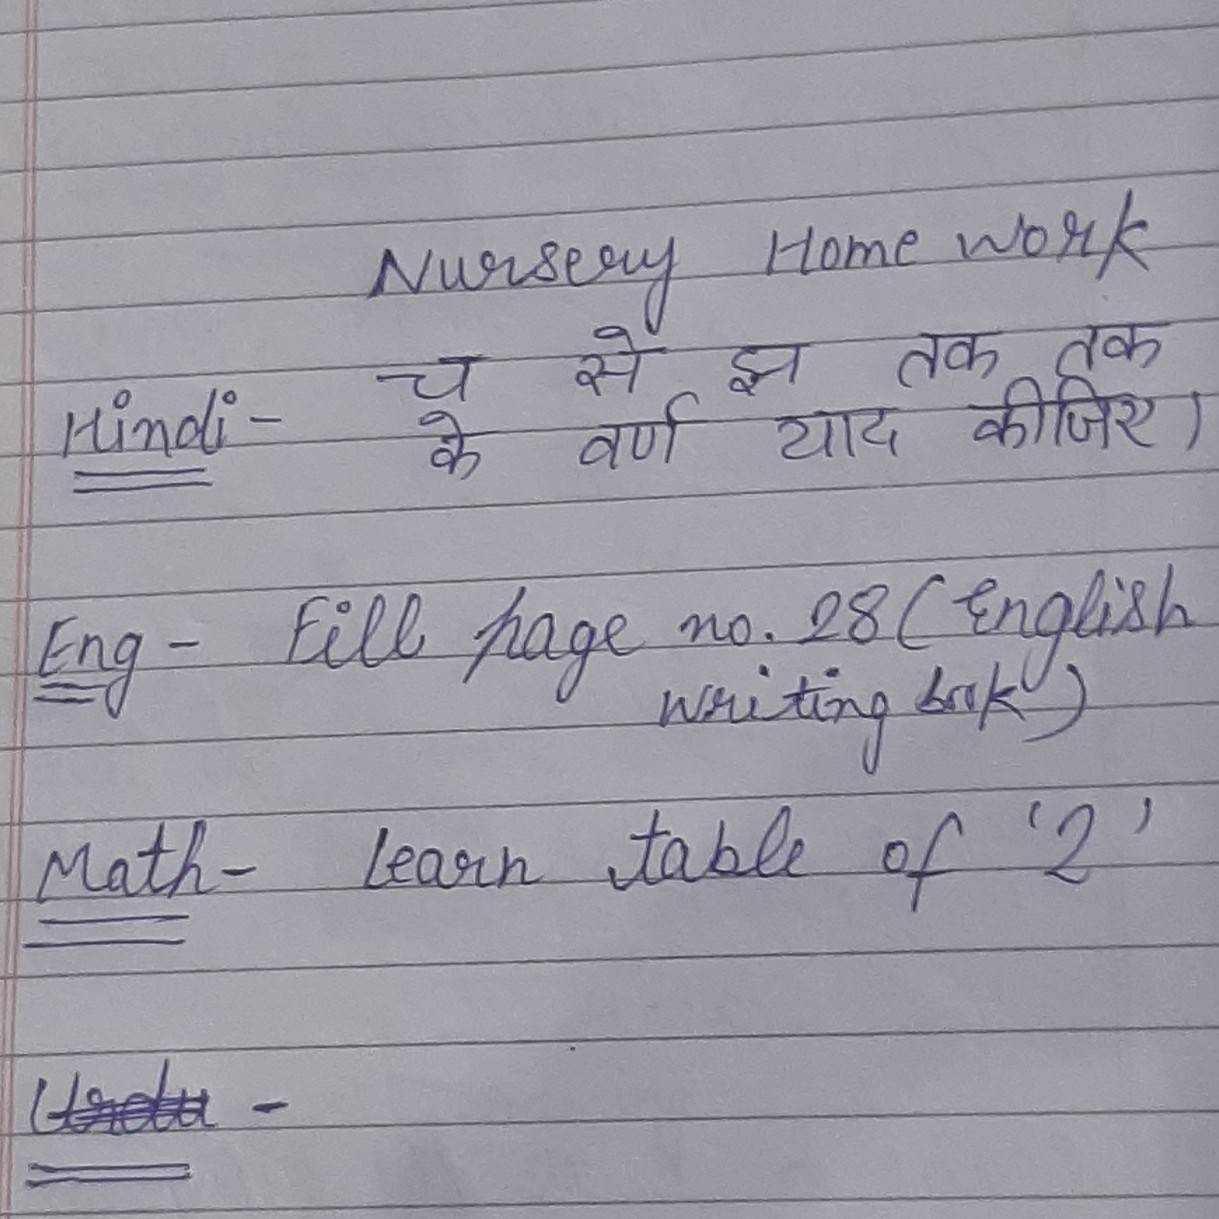 Nursery Home Work
च से झ तक तक
Hindi - के वर्ण याद कीजिए।
Eng - Fill page no. 28 (English
writing book)
Math - Learn table of '2'
Urdu -